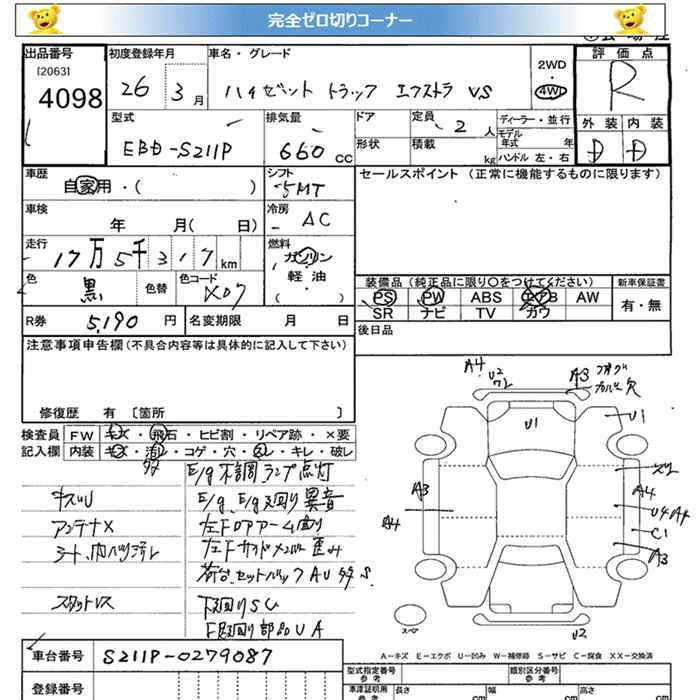 完全ゼロ切りコーナー
出品番号
[2063]
4098
初度登録年月
26 3月
車名・グレード
ハイゼット トラック エクストラ VS
2WD
・
4WD
評価点
R
外装 内装
D D
型式
EBD-S211P
排気量
660 cc
ドア
形状
定員
2 人
積載
kg
ディーラー・並行
モデル
年式 年
ハンドル 左・右
車歴
自家用・( )
シフト
5MT
セールスポイント (正常に機能するものに限ります)
車検
年 月( 日)
冷房
AC
走行
17万5千317km
燃料
ガソリン
軽・油
( )
色
黒
色替
色コード
X07
装備品(純正品に限り○をつけてください)
新車保証書
PS PW ABS エアB AW
SR ナビ TV カワ
有・無
R券 5,190 円
名変期限 月 日
後日品
注意事項申告欄(不具合内容等は具体的に記入して下さい)
修復歴 有〔箇所 〕
検査員 FW キズ・飛石・ヒビ割・リペア跡・×要
記入欄 内装 キズ・汚レ・コゲ・穴・スレ・キレ・破レ
E/g不調ランプ点灯
キズU
E/g、E/g廻り異音
アンテナX
左FロアアームU廻り
シート、内ハリ汚レ
荷台、セットバックAU
スタットレス
下廻りSU
下廻り部品UA
A4
U2
ワレ
A3
フォグ
カバー欠
U1
U1
A3
A4
スリ
A4
U4
C1
A3
U2
スペア
A-キズ E-エクボ U-凹み W-補修跡 S-サビ C-腐食 XX-交換済
車台番号 S211P-0279087
登録番号
型式指定番号
参考
類別区分番号
参考
車庫証明用
参考
長さ cm
幅 cm
高さ cm